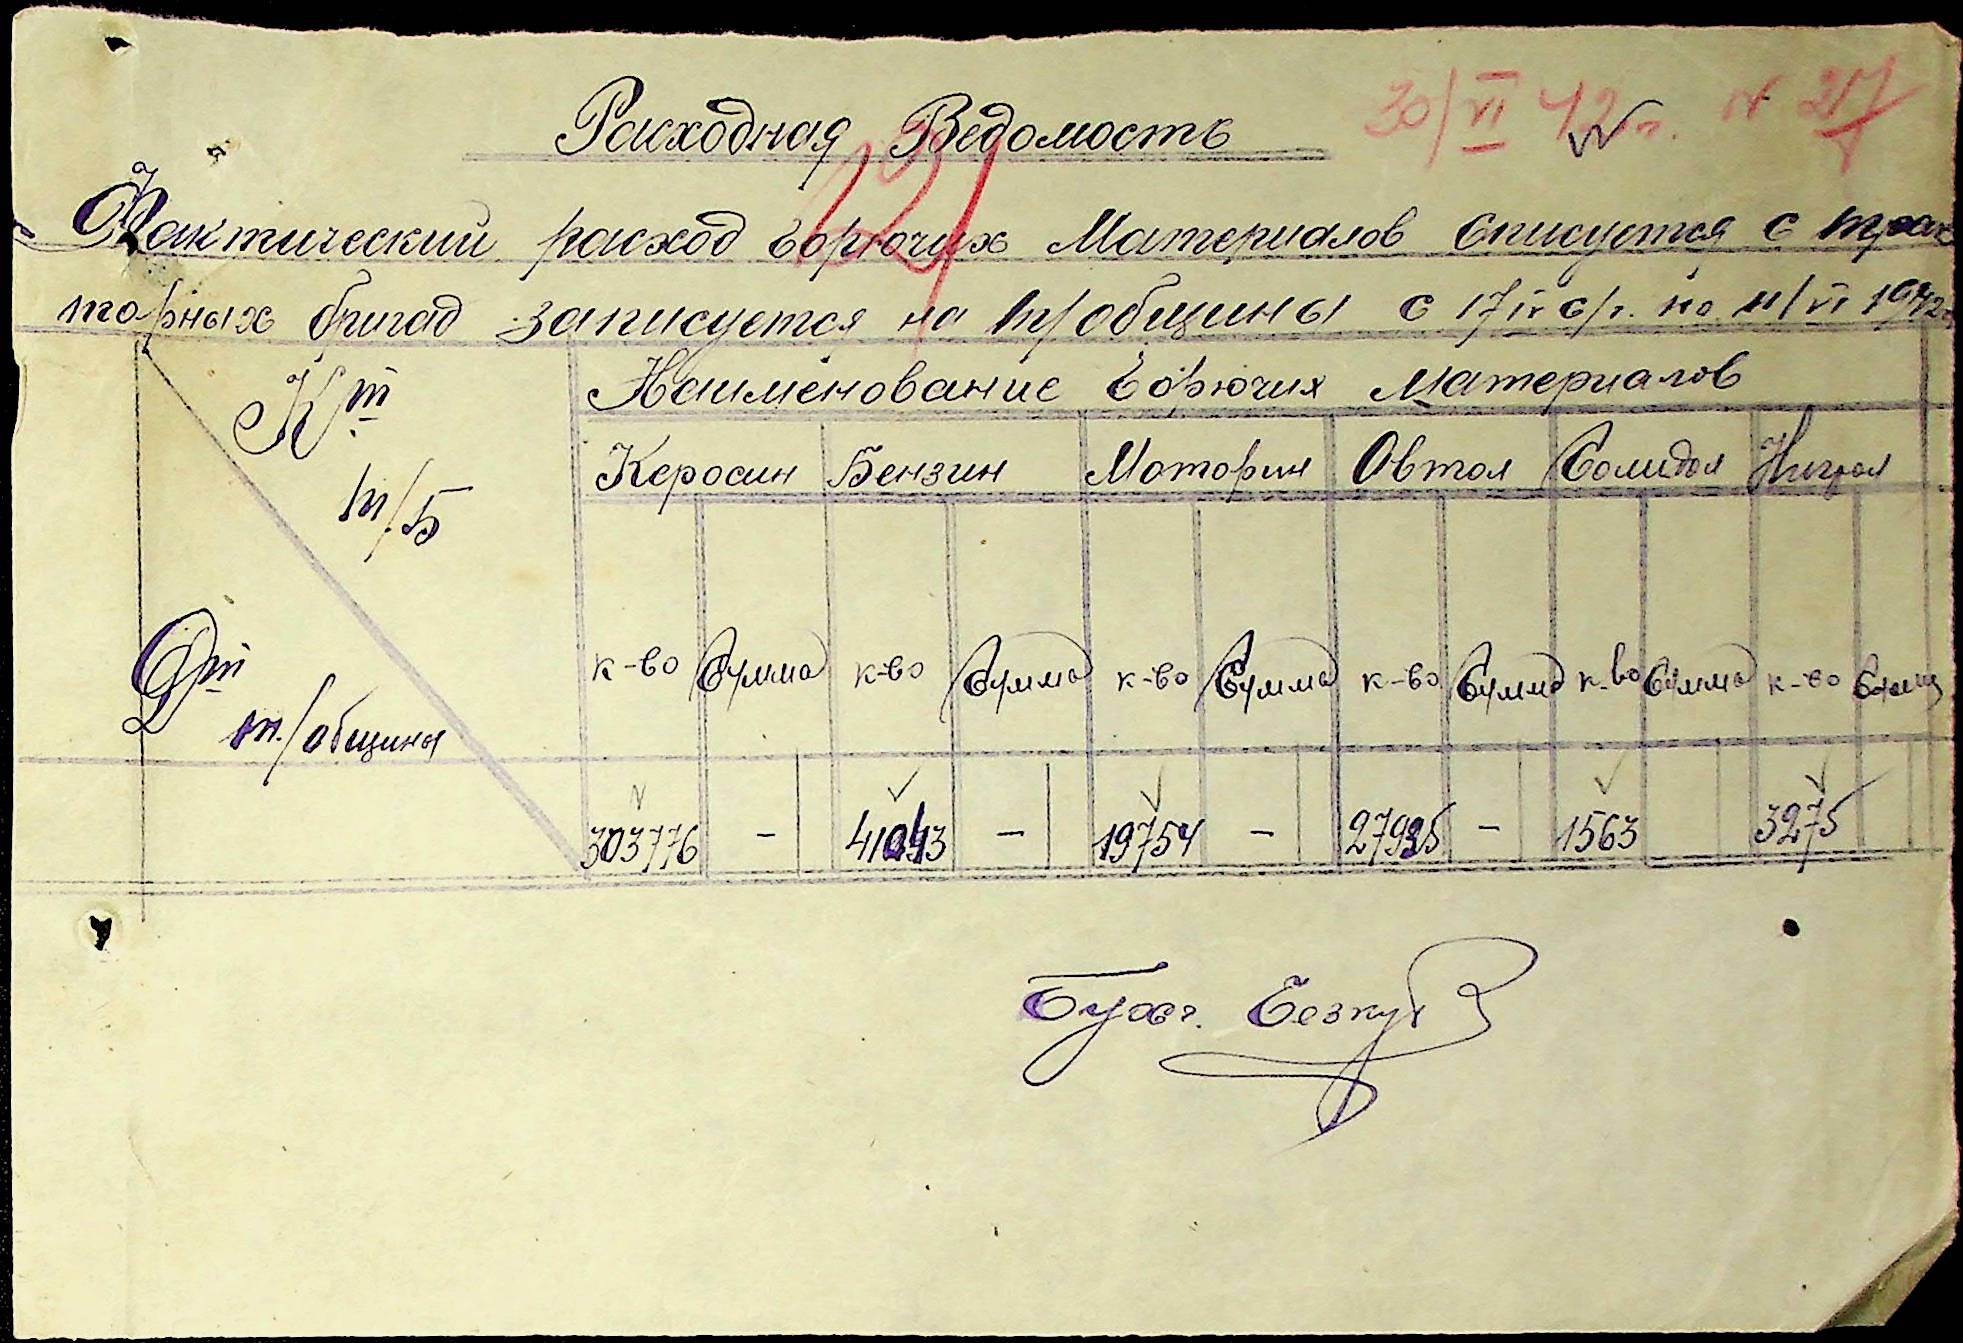 Расходная Ведомость
30/VI 42 г. N 217
221
Фактический расход горючих Материалов списуется с трак
торных бригад записуется на тр общины с 17 IV с/г. по 11/VI 1942 г.
Кт
т/Б
Дт
т./общины
Наименование Горючих Материалов
Керосин Бензин Моторин Овтол Солидол Нигрол
к-во Сумма к-во Сумма к-во Сумма к-во Сумма к-во Сумма к-во Сумм
303776 - 41043 - 19754 - 27935 - 1563 3275
Бухг.